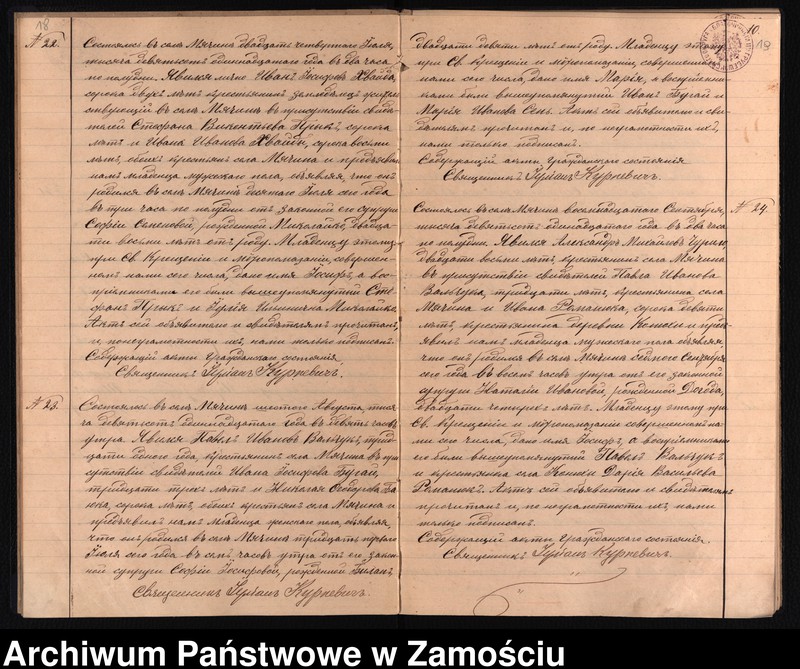 18
№ 22.
Состоялось въ селѣ Мячинѣ двадцать четвертаго Іюля,
тысяча девятьсотъ одиннадцатаго года въ два часа
по полудни. Явился лично Иванъ Іосифовъ Хвайда,
сорока двухъ лѣтъ крестьянинъ земледѣлецъ жительствующій въ селѣ Мячинѣ въ присутствіи свиде-
телей Стефана Викентьева сорока
лѣтъ и Ивана Иванова Хвайды, сорока восьми
лѣтъ, обоихъ крестьянъ села Мячина и предъявилъ
намъ младенца мужескаго пола, объявляя, что онъ
родился въ селѣ Мячинѣ Іюля сего года
въ три часа по полудни отъ законной его супруги
Софіи Семеновой, рожденной Миколайко, двадца-
ти восьми лѣтъ отъ роду. Младенцу этому
при Св. Крещеніи и мѵропомазаніи, совершен-
номъ нами сего числа, дано имя Іосифъ, а вос-
пріемниками его были вышеупомянутый Сте-
фанъ и Юлія Миколайко.
Актъ сей объявителю и свидѣтелямъ прочитанъ,
и, по неграмотности ихъ, нами только подписанъ.
Содержащій акты гражданскаго состоянія
Священникъ Куркевичъ.
№ 23.
Состоялось въ селѣ Мячинѣ шестого Августа, тыся-
ча девятьсотъ одиннадцатаго года въ девять часовъ
утра. Явился Павелъ Ивановъ Вальчукъ, трид-
цати одного года, крестьянинъ села Мячина въ при-
сутствіи свидѣтелей Ивана Іосифова Бугай,
тридцати трехъ лѣтъ и Николая Ѳеодорова
сорока лѣтъ, обоихъ крестьянъ села Мячина и
предъявилъ намъ младенца женскаго пола, объявляя,
что онъ родился въ селѣ Мячинѣ тридцать перваго
Іюля сего года въ семь часовъ утра отъ его закон-
ной супруги Софіи Іосифовой, рожденной
Священникъ Куркевичъ.
10.
19
двадцати девяти лѣтъ отъ роду. Младенцу этому
при Св. Крещеніи и мѵропомазаніи, совершенномъ
нами сего числа, дано имя Марія, а воспріемни-
ками были вышеупомянутый Иванъ Бугай и
Марія Иванова Сень. Актъ сей объявителю и сви-
дѣтелямъ прочитанъ и, по неграмотности ихъ,
нами только подписанъ.
Содержащій акты гражданскаго состоянія
Священникъ Куркевичъ.
№ 24.
Состоялось въ селѣ Мячинѣ восемнадцатаго Сентября,
тысяча девятьсотъ одиннадцатаго года въ два часа
по полудни. Явился Александръ Михайловъ
двадцати восьми лѣтъ, крестьянинъ села Мячина
въ присутствіи свидѣтелей Павла Иванова
Вальчука, тридцати лѣтъ, крестьянина села
Мячина и Ивана Романюка, сорока девяти
лѣтъ, крестьянина деревни и предъ-
явилъ намъ младенца мужескаго пола объявляя,
что онъ родился въ селѣ Мячинѣ седмого Сентября
сего года въ восемь часовъ утра отъ его законной
супруги Наталіи Ивановой, рожденной
двадцати четырехъ лѣтъ. Младенцу этому при
Св. Крещеніи и мѵропомазаніи совершенномъ на-
ми сего числа, дано имя Іосифъ, а воспріемниками
его были вышеупомянутый Павелъ Вальчукъ
и крестьянка села Дарія Васильева
Романюкъ. Актъ сей объявителю и свидѣтелямъ
прочитанъ и, по неграмотности ихъ, нами
только подписанъ.
Содержащій акты гражданскаго состоянія.
Священникъ Куркевичъ.
Archiwum Państwowe w Zamościu